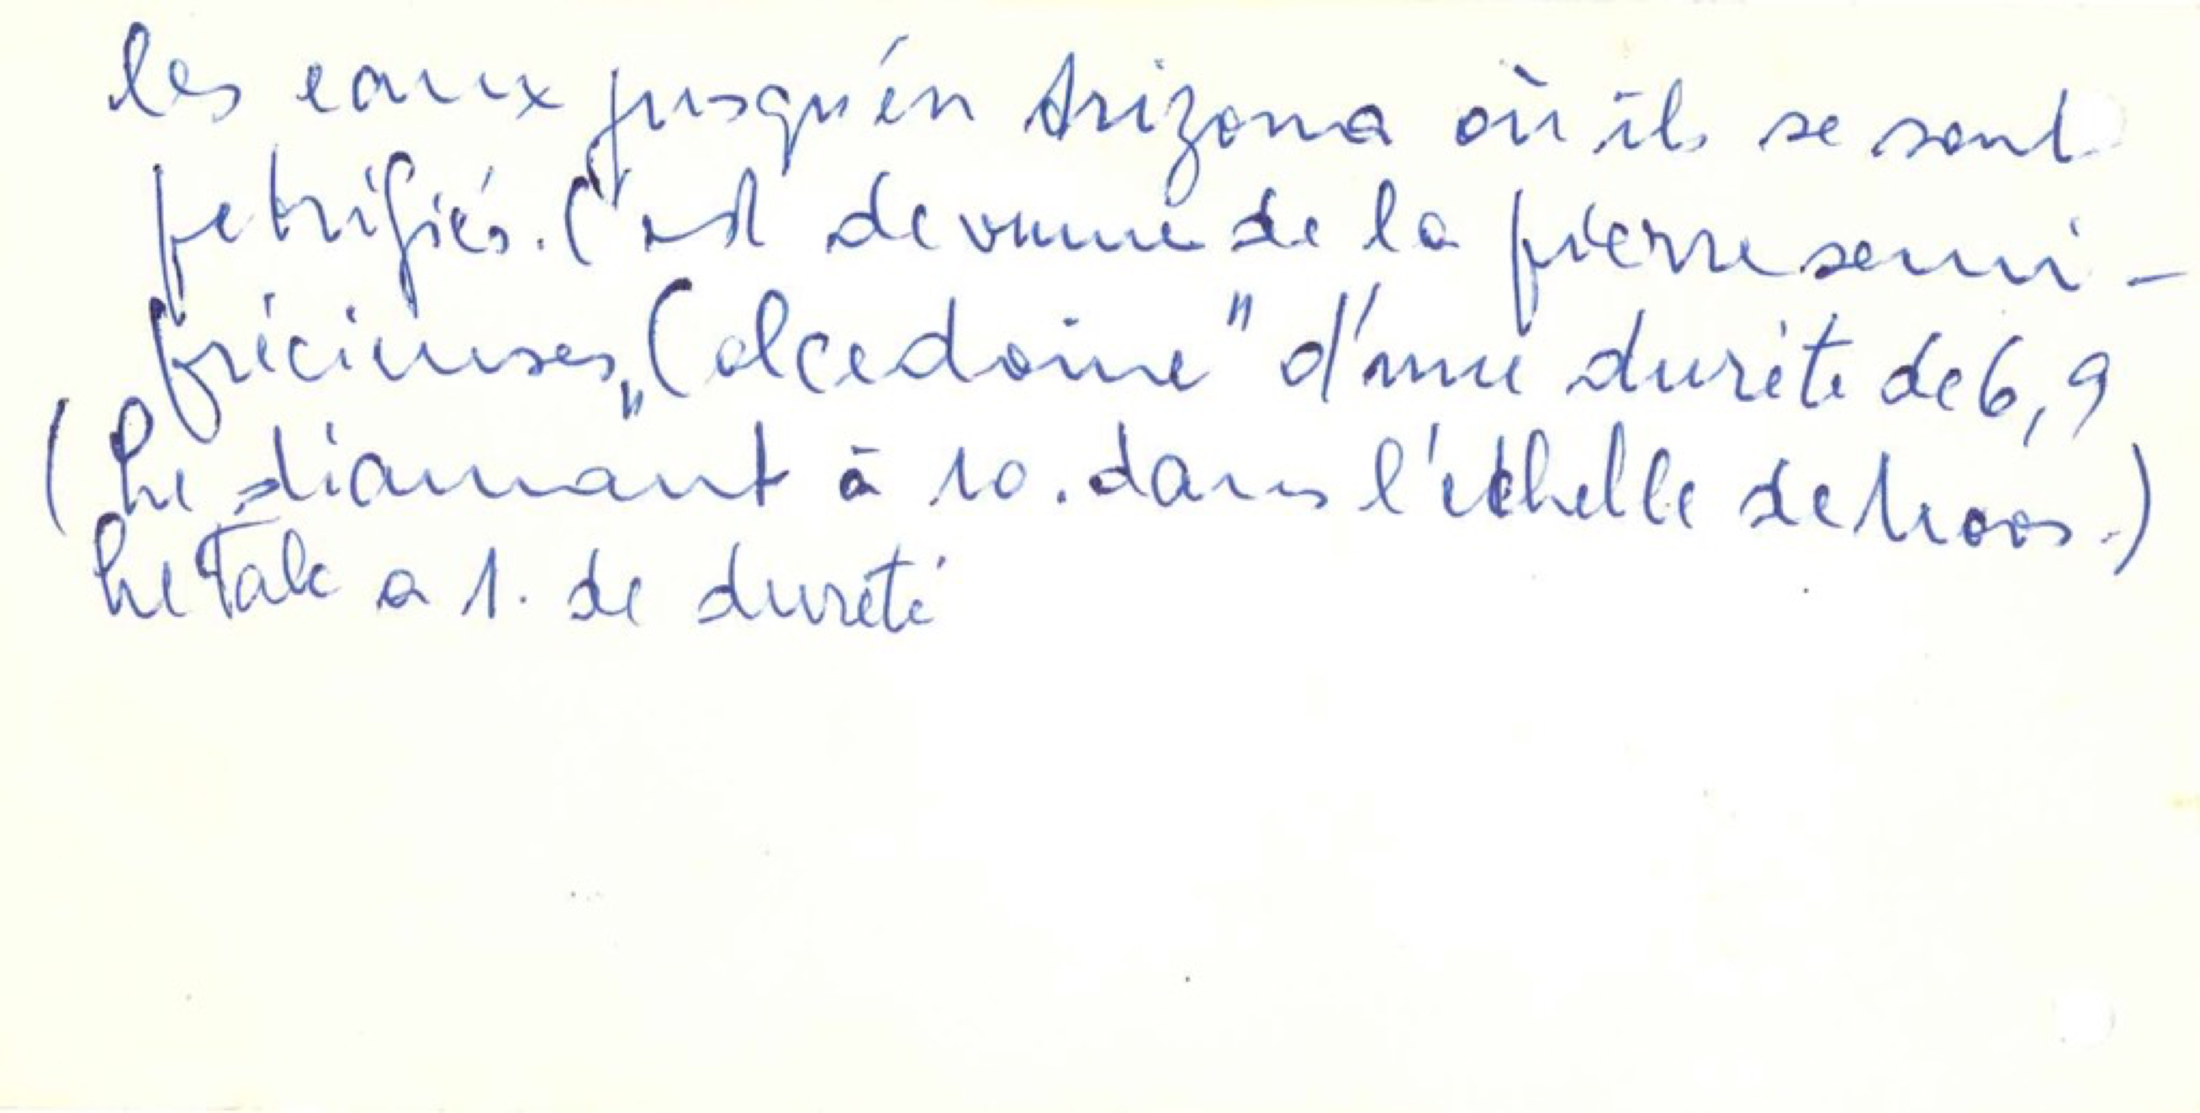 les eaux jusqu'én Arizona où ils se sont
petrifiés. C'est devenue de la pierre semi-
précieuses „Calcedoine" d'une durété de 6,9
(Le diamant à 10. dans l'echelle de Moos.)
Le Talc a 1. de dureté